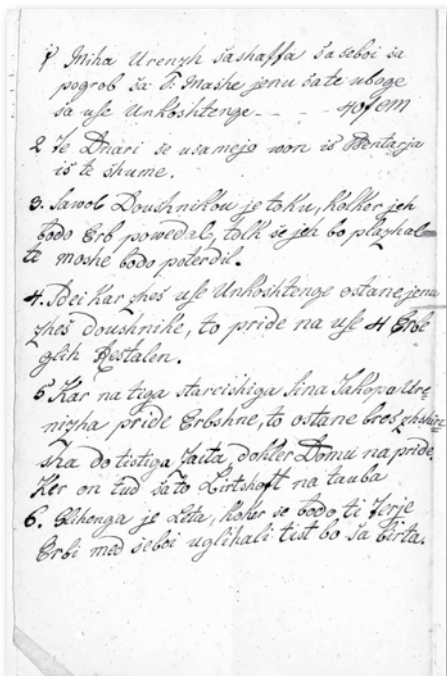 1 Miha Urenzh sashaffa sa seboi sa
pogrob sa: S: Mashe jenu sa te uboge
sa use Unkoshtenge - - - 40f
2 Te Dnari se usamejo won is Bentarja
is te shume.
3. Sawol Doushnikou je toku, kolkor jeh
bodo Erb powedal, tolk se jeh bo plazhal
te moshe bodo poterdil.
4. Sdei kar zhes use Unkoshtenge ostane jenu
zhes doushnike, to pride na use 4 Erbe
glih Restalen.
5 Kar na tiga stareishiga sina Jakopa Ure=
nizha pride Erbshne, to ostane bres
sha do tistiga Zaita, dokler Domu na pride.
Ker on tud sa to Wirtshaft na tauba
6. Glihenga je Leta, koker se bodo ti
Erbi med seboi uglihali tist bo sa birta.